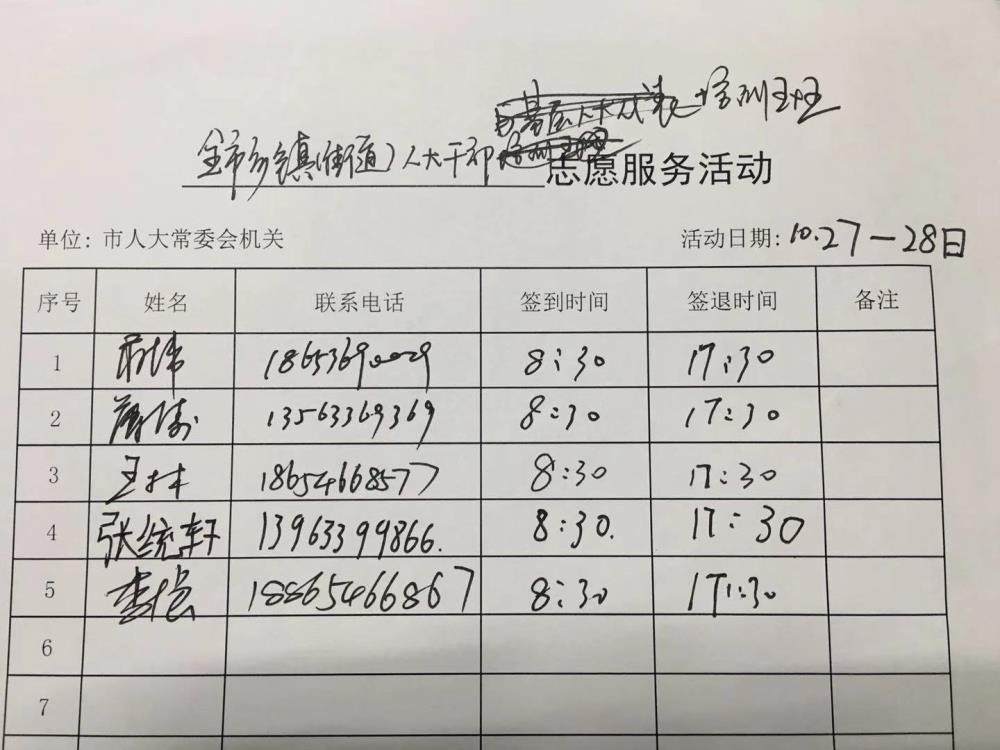 培训班
全市乡镇(街道)人大干部
志愿服务活动
单位：市人大常委会机关 活动日期：10.27—28日
序号 姓名 联系电话 签到时间 签退时间 备注
1 18653690029 8:30 17:30
2 13563369369 8:30 17:30
3 王林 18654668577 8:30 17:30
4 张统轩 13963399866. 8:30. 17:30
5 18865466867 8:30 17:30
6
7